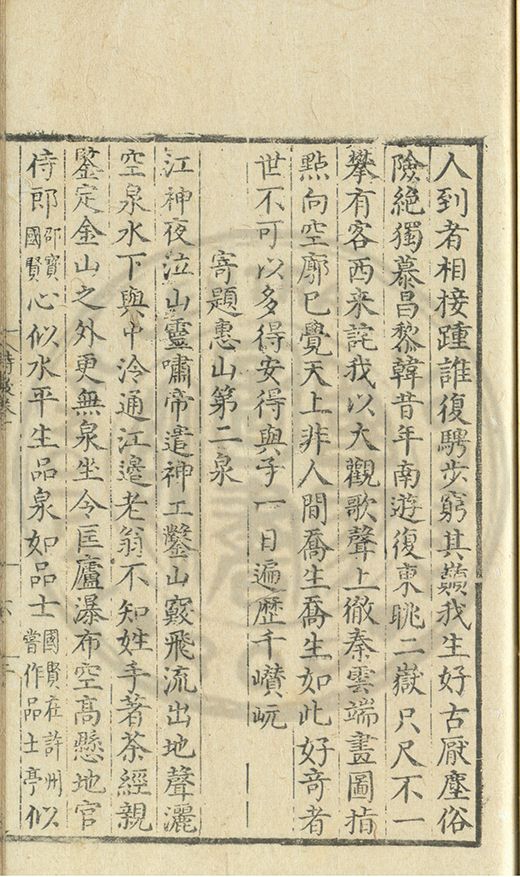 人到者相接踵誰復騁步窮其巔我生好古厭塵俗
險絶獨慕昌黎韓昔年南遊復東眺二嶽只尺不一
攀有客西来詫我以大觀歌聲上徹秦雲端畫圖指
點向空廓已覺天上非人間喬生喬生如此好竒者
世不可以多得安得與子一日遍歷千巑岏
寄題惠山第二泉
江神夜泣山靈嘯帝遣神工鑿山竅飛流出地聲灑
空泉水下與中泠通江邊老翁不知姓手著茶經親
鑒定金山之外更無泉坐令匡廬瀑布空髙懸地官
侍郎邵寳國賢心似水平生品泉如品士國賢在許州嘗作品士亭似